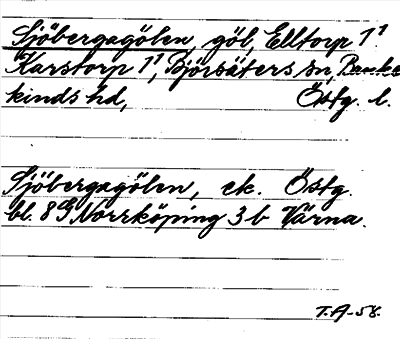 Sjöbergagölen, göl, Elltorp 1¹
Karstorp 1¹, Björsäters sn, Banke
kinds hd, Östg. l.
Sjöbergagölen, ek. Östg.
bl. 8 G Norrköping 3 b Värna.
T.A-58.